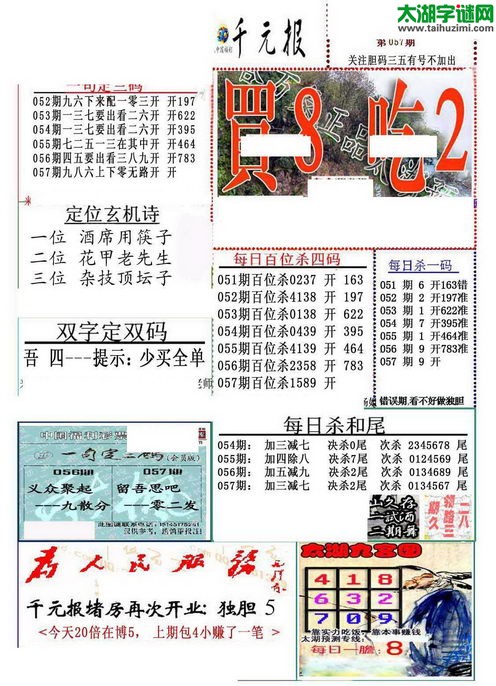 太湖字谜网
www.taihuzimi.com
千元报
第057期
关注胆码三五有号不加出
一句定三码
052期九六下来配一零三开 开197
053期一三七要出看二六开 开622
054期一三七要出看二六开 开395
055期七二五一三在其中开 开464
056期四五要出看三八九开 开783
057期九八六上下零无路开 开
買8 吃2
定位玄机诗
一位 酒席用筷子
二位 花甲老先生
三位 杂技顶坛子
每日百位杀四码
051期百位杀0237 开 163
052期百位杀4138 开 197
053期百位杀0149 开 622
054期百位杀0267 开 395
055期百位杀0439 开 464
056期百位杀2358 开 783
057期百位杀1589 开
每日杀一码
051 期 6 开163错
052 期 2 开197准
053 期 1 开622准
054 期 7 开395准
055 期 1 开464准
056 期 9 开783准
057 期 9 开
错误期,看不好做独胆
双字定双码
吾 四---提示: 少买全单
每日杀和尾
054期: 加三减七 决杀0尾 次杀 2345678 尾
055期: 加四除八 决杀7尾 次杀 0124569 尾
056期: 加一减九 决杀2尾 次杀 0134689 尾
057期: 加三减七 决杀2尾 次杀 0134567 尾
中国福利彩票
一句定二码(会员版)
056期 057期
义众聚起 留吾思吧
----九散分 ----零二发
仅供参考,
为人民服务
千元报堵房再次开业: 独胆 5
<今天20倍在博5, 上期包4小赚了一笔>
太湖九宫图
4 1 8
6 3 2
7 0 9
靠实力吃饭 靠本事赚钱
太湖预测专线:
每日一胆: 8